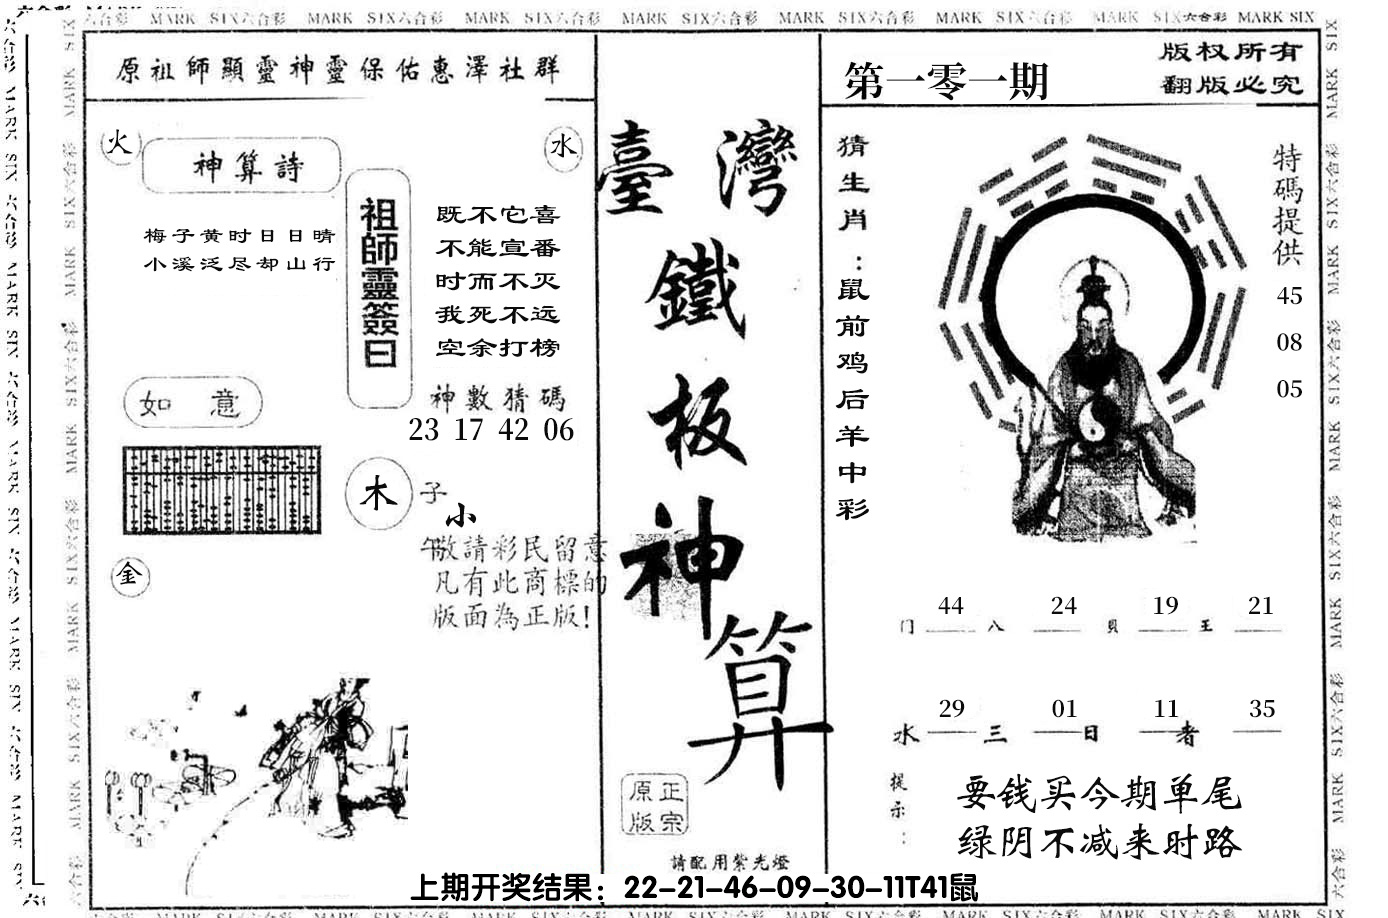 MARK SIX六合彩 MARK SIX六合彩 MARK SIX六合彩 MARK SIX六合彩 MARK SIX六合彩 MARK SIX六合彩 MARK SIX六合彩 MARK SIX
原祖師顯靈神靈保佑惠澤社群
火
水
神算詩
梅子黄时日日晴
小溪泛尽却山行
祖師靈簽曰
既不它喜
不能宣番
时而不灭
我死不远
空余打榜
神數猜碼
23 17 42 06
如意
木
子
小
午
金
敬請彩民留意
凡有此商標的
版面為正版!
臺灣
鐵
板
神
算
原正
版宗
請配用紫光燈
第一零一期
版权所有
翻版必究
猜生肖：鼠前鸡后羊中彩
特碼提供
45
08
05
门 44 八 24 貝 19 王 21
水 29 三 01 日 11 者 35
提示：
要钱买今期单尾
绿阴不减来时路
上期开奖结果：22-21-46-09-30-11T41鼠